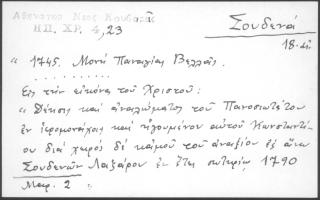 Αθενάγορα Νέος Κουβαρᾶς
ΗΠ. ΧΡ. 4, 23
Σουδενά
18-
" 1745. Μονή Παναγίας Βελλᾶς.
. . . . . . . . . .
Εἰς τήν εἰκόνα τοῦ Χριστοῦ:
" Δέησις καί ἀναλώματος τοῦ Πανοσιωτάτου
ἐν ἱερομονάχοις καί ἡγουμένου αὐτοῦ Κωνσταντί-
ου διά χειρός δέ κἀμοῦ τοῦ ἀναξίου ἐξ ἄνω
Σουδενῶν Λαζάρου ἐν ἔτει σωτηρίῳ 1790
Μαρ. 2 "